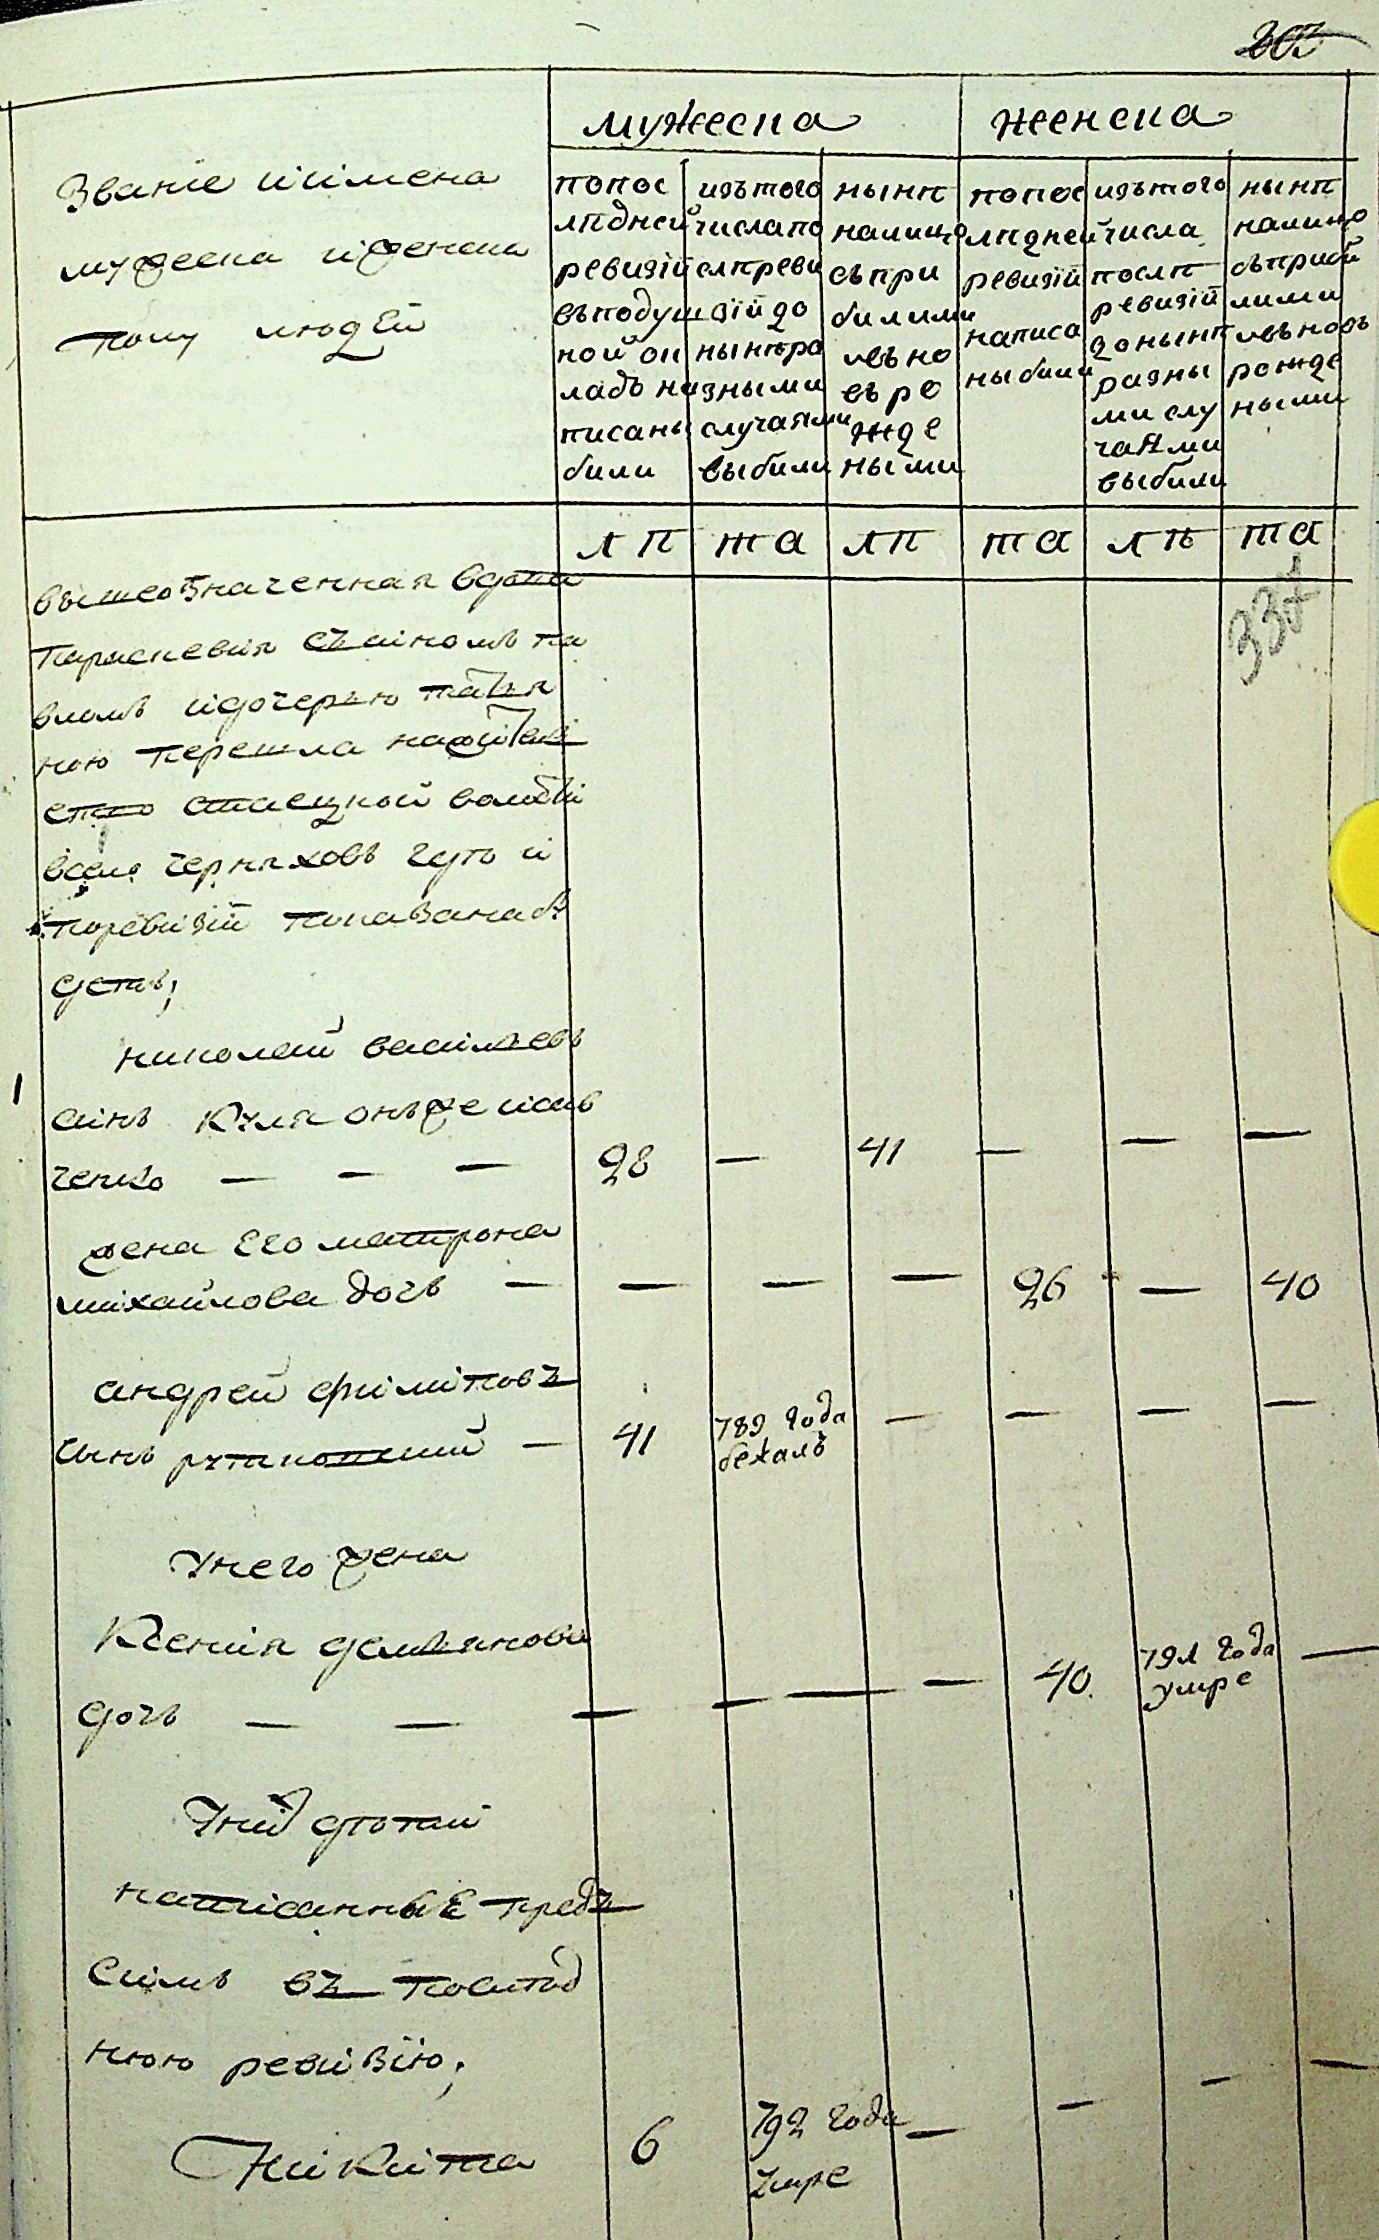 203
мужеска
женска
Званіе иімена
мужеска иженска
полу людей
попос
лѣдней
ревизій
въподуш
ной ок
ладъ на
писаны
били
изътого
числапо
слѣреви
зій до
нынѣра
зными
случаями
выбили
нынѣ
налицо
съпри
билими
ивъно
въро
жде
ными
попос
лѣдней
ревизій
написа
ныбили
изътого
числа
послѣ
ревизій
донынѣ
разны
ми слу
чаями
выбили
нынѣ
налицо
съприби
лими
ивъновъ
рожде
ными
лѣ
та
лѣ
та
лѣ
та
337
вышеозначенная вдова
Параскевия съ сіномъ па
вломъ идочерью татья
ною перешла
волости
всело черняховъ гдѣ и
поревизій показана бу
детъ;
николай васильевъ
1
сінъ Куля онъже исав
ченко — — — 28 — 41 — — —
жена Его матрона
михайлова дочь — — — — 26 — 40
андрей филіповъ
сынъ — 41 789 года — — — —
бежалъ
Унего жена
Ксенія демьянова
дочь — — — — — — 40 791 года —
умре
Уних дѣтей
написанные предъ
симъ въ послѣд
нюю ревизію;
Никита 6 792 года — — — —
умре